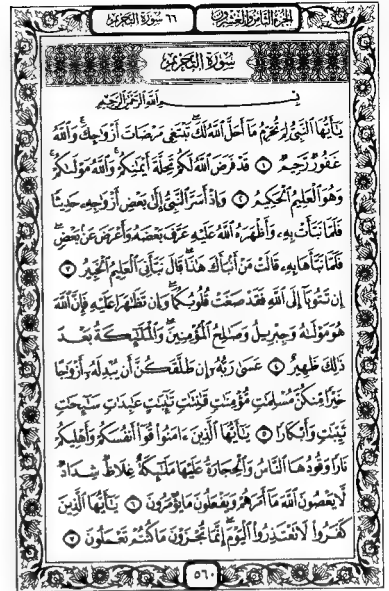 الجزء الثامن والعشرون
٦٦ سورة التحريم
سورة التحريم
بِسْمِ ٱللَّهِ ٱلرَّحْمَٰنِ ٱلرَّحِيمِ
يَٰٓأَيُّهَا ٱلنَّبِيُّ لِمَ تُحَرِّمُ مَآ أَحَلَّ ٱللَّهُ لَكَۖ تَبْتَغِى مَرْضَاتَ أَزْوَٰجِكَۚ وَٱللَّهُ
غَفُورٌ رَّحِيمٌ ١ قَدْ فَرَضَ ٱللَّهُ لَكُمْ تَحِلَّةَ أَيْمَٰنِكُمْۚ وَٱللَّهُ مَوْلَىٰكُمْۖ
وَهُوَ ٱلْعَلِيمُ ٱلْحَكِيمُ ٢ وَإِذْ أَسَرَّ ٱلنَّبِيُّ إِلَىٰ بَعْضِ أَزْوَٰجِهِۦ حَدِيثًا
فَلَمَّا نَبَّأَتْ بِهِۦ وَأَظْهَرَهُ ٱللَّهُ عَلَيْهِ عَرَّفَ بَعْضَهُۥ وَأَعْرَضَ عَنۢ بَعْضٖۖ
فَلَمَّا نَبَّأَهَا بِهِۦ قَالَتْ مَنْ أَنۢبَأَكَ هَٰذَاۖ قَالَ نَبَّأَنِىَ ٱلْعَلِيمُ ٱلْخَبِيرُ ٣
إِن تَتُوبَآ إِلَى ٱللَّهِ فَقَدْ صَغَتْ قُلُوبُكُمَاۖ وَإِن تَظَٰهَرَا عَلَيْهِ فَإِنَّ ٱللَّهَ
هُوَ مَوْلَىٰهُ وَجِبْرِيلُ وَصَٰلِحُ ٱلْمُؤْمِنِينَۖ وَٱلْمَلَٰٓئِكَةُ بَعْدَ
ذَٰلِكَ ظَهِيرٌ ٤ عَسَىٰ رَبُّهُۥٓ إِن طَلَّقَكُنَّ أَن يُبْدِلَهُۥٓ أَزْوَٰجًا
خَيْرًا مِّنكُنَّ مُسْلِمَٰتٍ مُّؤْمِنَٰتٍ قَٰنِتَٰتٍ تَٰٓئِبَٰتٍ عَٰبِدَٰتٍ سَٰٓئِحَٰتٍ
ثَيِّبَٰتٍ وَأَبْكَارًا ٥ يَٰٓأَيُّهَا ٱلَّذِينَ ءَامَنُوا۟ قُوٓا۟ أَنفُسَكُمْ وَأَهْلِيكُمْ
نَارًا وَقُودُهَا ٱلنَّاسُ وَٱلْحِجَارَةُ عَلَيْهَا مَلَٰٓئِكَةٌ غِلَاظٌ شِدَادٌ
لَّا يَعْصُونَ ٱللَّهَ مَآ أَمَرَهُمْ وَيَفْعَلُونَ مَا يُؤْمَرُونَ ٦ يَٰٓأَيُّهَا ٱلَّذِينَ
كَفَرُوا۟ لَا تَعْتَذِرُوا۟ ٱلْيَوْمَۖ إِنَّمَا تُجْزَوْنَ مَا كُنتُمْ تَعْمَلُونَ ٧
٥٦٠